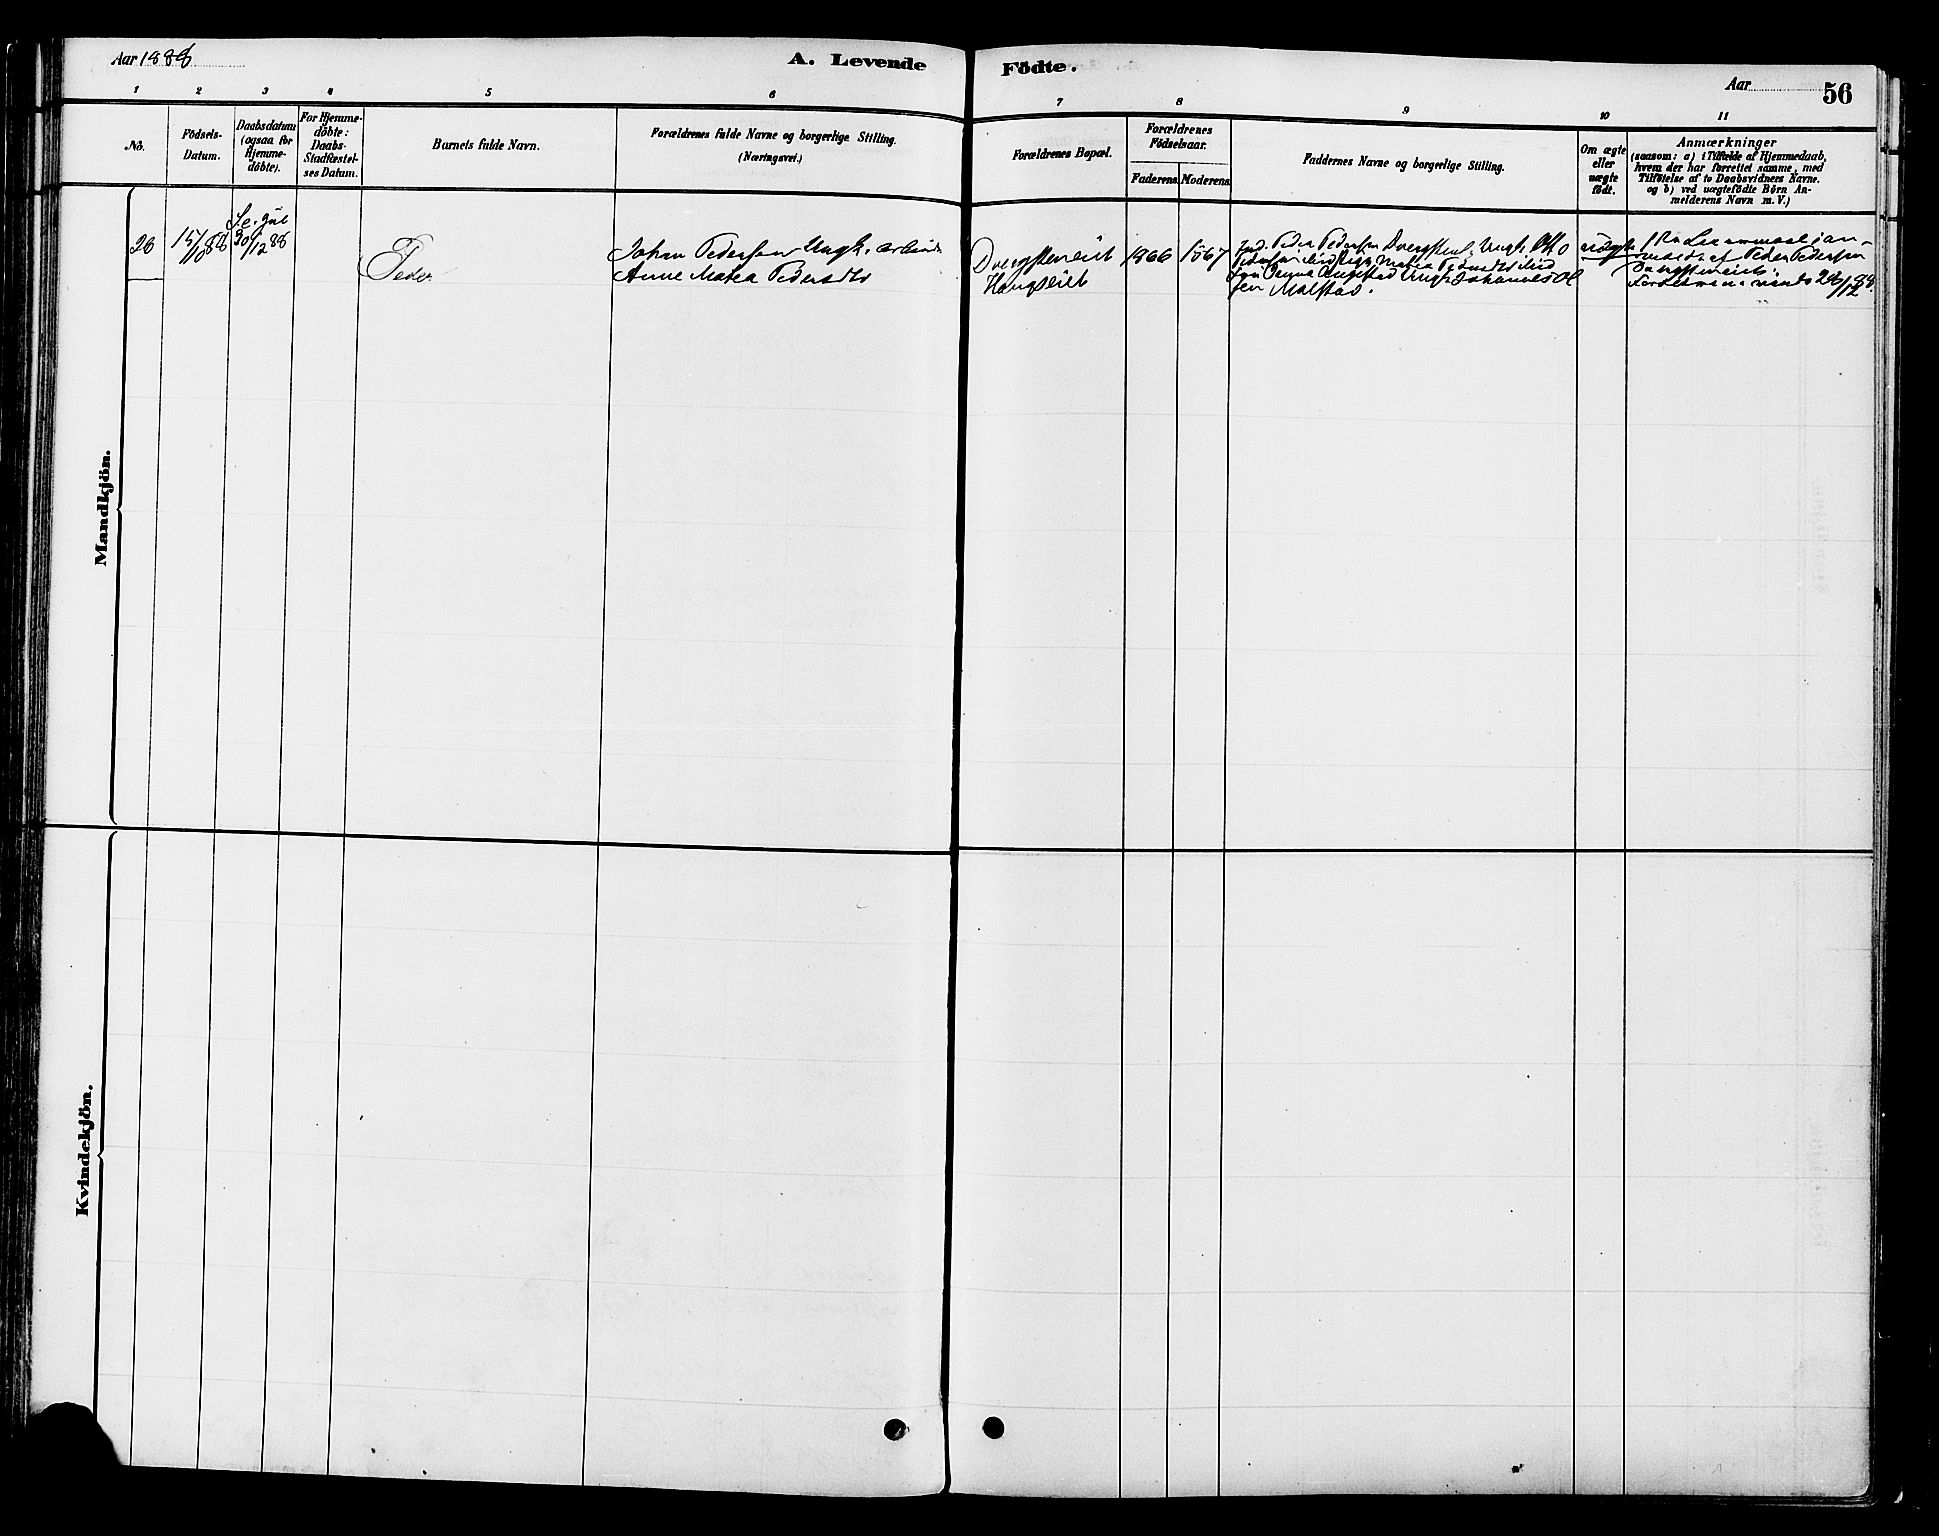 Aar 1888
A. Levende
Födte.
Aar
56
1
2
3
4
5
6
7
8
9
10
11
No.
Födsels-
Datum.
Daabsdatum
(ogsaa for
Hjemme-
döbte).
For Hjemme-
döbte:
Daabs-
Stadfæstel-
ses Datum.
Barnets fulde Navn.
Forældrenes fulde Navne og borgerlige Stilling.
(Næringsvei.)
Forældrenes Bopæl.
Forældrenes
Födselsaar.
Faderens.
Moderens.
Faddernes Navne og borgerlige Stilling.
Om ægte
eller
uægte
födt.
Anmærkninger
(saasom: a) i Tilfælde af Hjemmedaab,
hvem der har forrettet samme, med
Tilföielse af to Daabsvidners Navne.
og b) ved uægtefödte Börn An-
melderens Navn m. V.)
Mandkjön.
26
15/10 88
S. e. Jul
30/12 88
Peder
Johan Pedersen Ungk. arbeid
Anne Matea Pedersdtr
Dvergsteneiet
Haugseiet
1866
1867
Peder Pedersen Ungk. Otto
Ungk. Johannes Ol
sen Malstad.
uægte
af Peder Pedersen
28/12 88.
Kvindekjön.